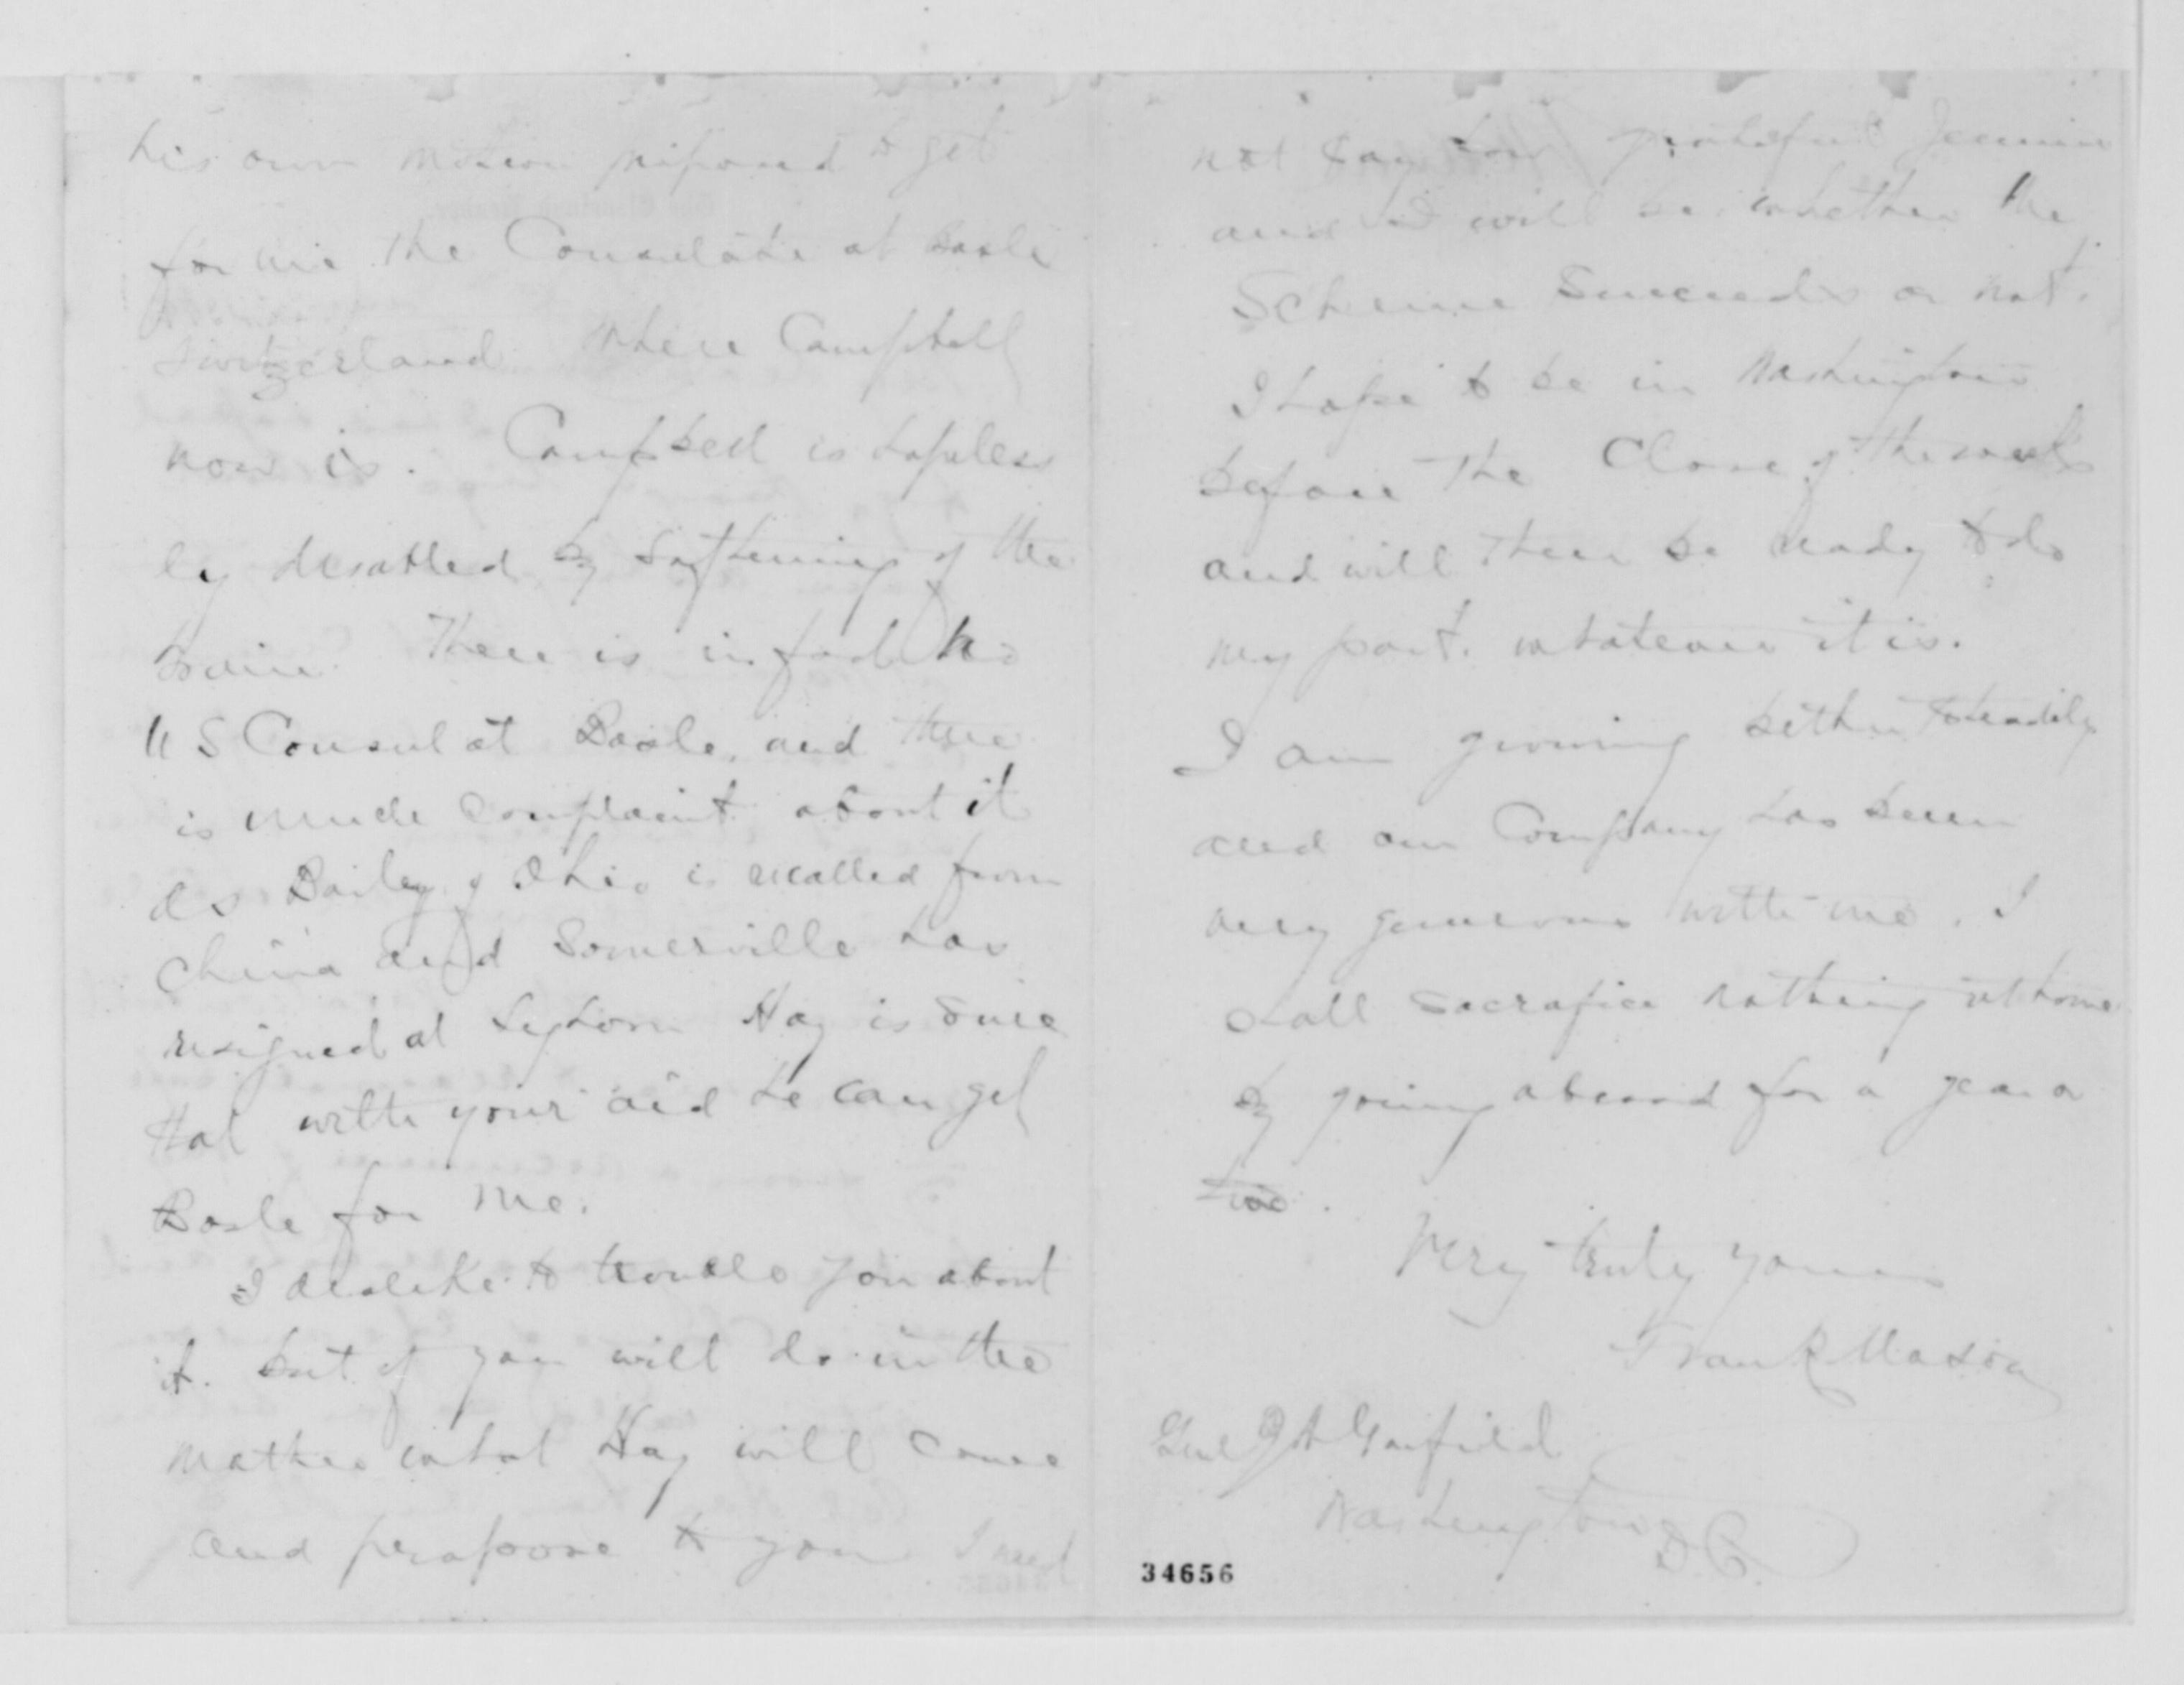 his own motion proposed to get
for me the Consulate at Basle
Switzerland where Campbell
now is. Campbell is hopeless
ly disabled by softening of the
brain. There is in fact no
U S Consul at Basle, and there
is much complaint about it
As Bailey of Ohio is recalled from
China and Somerville has
resigned at Leghorn Hay is sure
that with your aid he can get
Basle for me.
I dislike to trouble you about
it. but if you will do in the
matter what Hay will come
and propose to you I need
not say how grateful Jennie
and I will be whether the
Scheme Succeeds or not.
I hope to be in Washington
before the Close of the week
and will then be ready to do
my part. whatever it is.
I am growing better steadily
and our Company has been
very generous with me. I
shall sacrafice nothing at home
by going abroad for a year or
two.
Very truly yours
Frank Mason
Genl J A Garfield
Washington
D.C.
34656